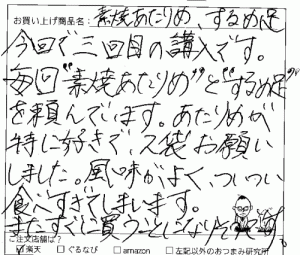 お買い上げ商品名：素焼あたりめ、するめ足
今回で三回目の購入です。
毎回"素焼あたりめ"と"するめ足"
を頼んでいます。あたりめが
特に好きで、2袋お願い
しました。風味がよく、ついつい
食べすぎてしまいます。
またすぐに買うことになりそうです。
ご注文店舗は？
☑楽天 □ぐるなび □amazon □左記以外のおつまみ研究所